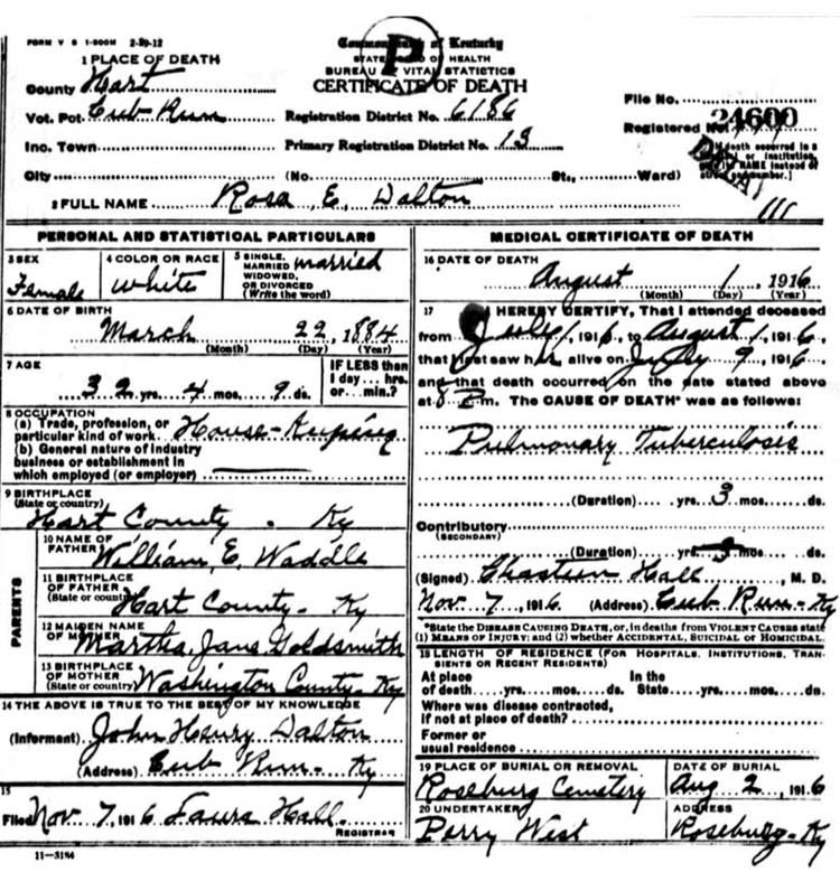 FORM V S 1-500M 2-29-12
Commonwealth of Kentucky
STATE BOARD OF HEALTH
BUREAU OF VITAL STATISTICS
CERTIFICATE OF DEATH
P
1 PLACE OF DEATH
County Hart
Vot. Pct. Cub Run
Registration District No. 6186
File No.
24600
Inc. Town
Primary Registration District No. 13
Registered No.
City (No. St., Ward)
2 FULL NAME Rosa E. Dalton
PERSONAL AND STATISTICAL PARTICULARS
3 SEX Female
4 COLOR OR RACE white
5 SINGLE, MARRIED, WIDOWED, OR DIVORCED (Write the word) married
6 DATE OF BIRTH
March 22, 1884
(Month) (Day) (Year)
7 AGE
32 yrs. 4 mos. 9 ds.
IF LESS than
1 day... hrs.
or... min.?
8 OCCUPATION
(a) Trade, profession, or
particular kind of work. House-Keeping
(b) General nature of industry
business or establishment in
which employed (or employer)
9 BIRTHPLACE
(State or country)
Hart County. Ky
PARENTS
10 NAME OF
FATHER William E. Waddle
11 BIRTHPLACE
OF FATHER
(State or country) Hart County. Ky
12 MAIDEN NAME
OF MOTHER Martha Jane Goldsmith
13 BIRTHPLACE
OF MOTHER
(State or country) Washington County. Ky
14 THE ABOVE IS TRUE TO THE BEST OF MY KNOWLEDGE
(Informant) John Henry Dalton
(Address) Cub Run. Ky
15
Filed Nov. 7, 1916 Laura Hall
REGISTRAR
11-3184
MEDICAL CERTIFICATE OF DEATH
16 DATE OF DEATH
August 1, 1916
(Month) (Day) (Year)
17 I HEREBY CERTIFY, That I attended deceased
from July 1, 1916, to August 1, 1916,
that I last saw her alive on July 9, 1916
and that death occurred on the date stated above
at 8 P.m. The CAUSE OF DEATH* was as follows:
Pulmonary Tuberculosis
(Duration) yrs. 3 mos. ds.
Contributory
(SECONDARY)
(Duration) yrs. 3 mos. ds.
(Signed) Chasteen Hall, M. D.
Nov. 7, 1916 (Address) Cub Run. Ky
*State the DISEASE CAUSING DEATH, or, in deaths from VIOLENT CAUSES state
(1) MEANS OF INJURY; and (2) whether ACCIDENTAL, SUICIDAL or HOMICIDAL.
18 LENGTH OF RESIDENCE (FOR HOSPITALS, INSTITUTIONS, TRAN-
SIENTS OR RECENT RESIDENTS)
At place In the
of death.....yrs.....mos.....ds. State.....yrs.....mos.....ds.
Where was disease contracted,
if not at place of death?
Former or
usual residence
19 PLACE OF BURIAL OR REMOVAL
Roseburg Cemetery
DATE OF BURIAL
Aug 2, 1916
20 UNDERTAKER
Perry West
ADDRESS
Roseburg. Ky